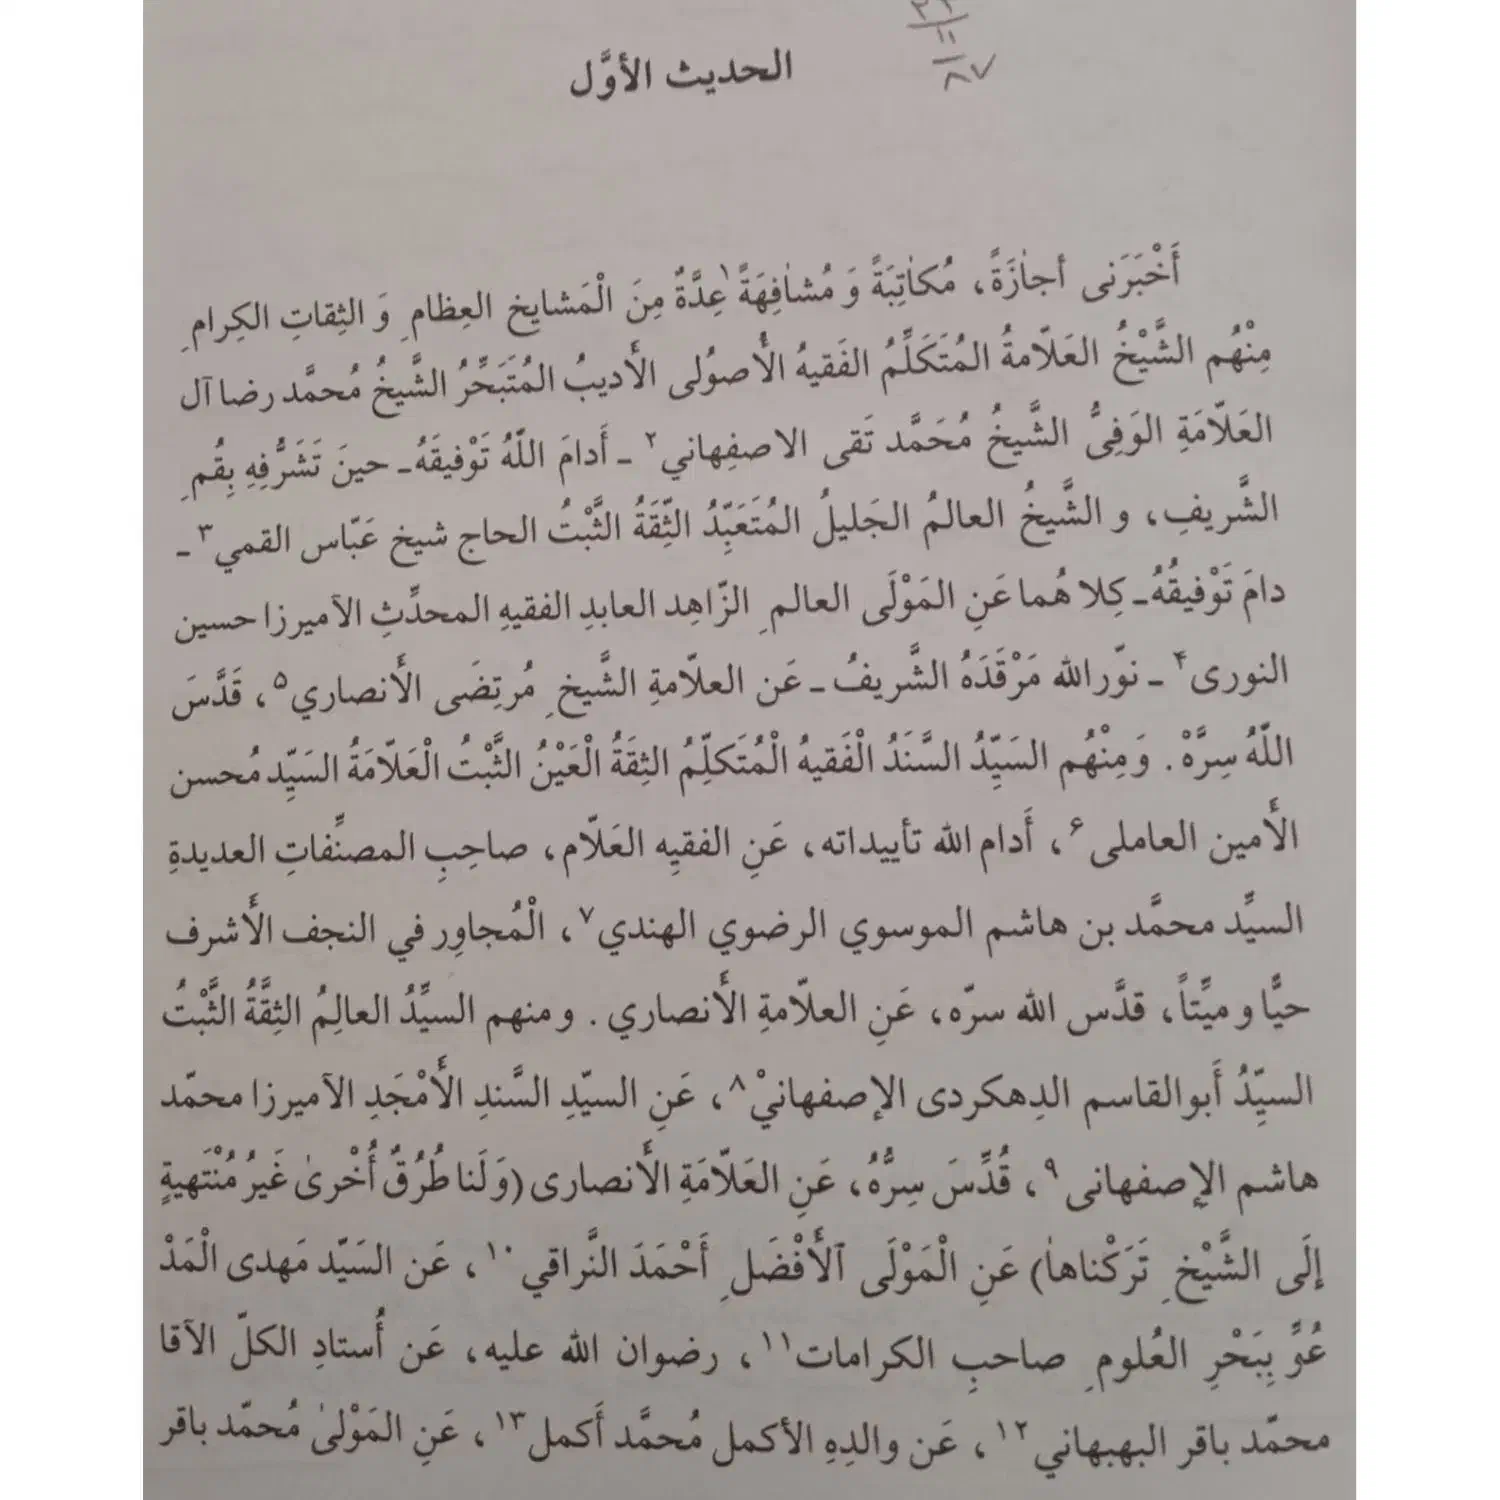 ۲۲
۱۱
۸۷
الحديث الأوَّل
أَخْبَرَنى أجازَةً، مُكاتِبَةً وَ مُشافِهَةً۱ عِدَّةٌ مِنَ الْمَشايخ العِظامِ وَ الثِقاتِ الكِرامِ
مِنْهُم الشَّيْخُ العَلاّمةُ المُتَكَلِّمُ الفَقيهُ الأُصوُلى الأَديبُ المُتَبَحِّرُ الشَّيخُ مُحمَّد رضا آل
العَلاّمَةِ الوَفِىُّ الشَّيخُ مُحَمَّد تَقى الاصفِهاني۲ ـ أَدامَ اللّهُ تَوْفيقَهُ ـ حينَ تَشَرُّفِهِ بِقُمِ
الشَّريفِ، و الشَّيخُ العالمُ الجَليلُ المُتَعَبِّدُ الثِّقَةُ الثَّبْتُ الحاج شيخ عَبّاس القمي۳ ـ
دامَ تَوْفيقُهُ ـ كِلا هُما عَنِ المَوْلَى العالمِ الزّاهِد العابدِ الفقيهِ المحدِّثِ الآميرزا حسين
النورى۴ ـ نوّرالله مَرْقَدَهُ الشَّريفُ ـ عَن العلاّمةِ الشَّيخِ مُرتِضَى الأَنصاري۵، قَدَّسَ
اللّهُ سِرَّهْ. وَ مِنْهُم السَيِّدُ السَّنَدُ الْفَقيهُ الْمُتَكلِّمُ الثِقَةُ الْعَيْنُ الثَّبْتُ الْعَلاّمَةُ السَيِّد مُحسن
الأَمين العاملى۶، أَدام الله تأييداته، عَنِ الفقيهِ العَلاّم، صاحِبِ المصنِّفاتِ العديدةِ
السيِّد محمَّد بن هاشم الموسوي الرضوي الهندي۷، الْمُجاوِر في النجف الأَشرف
حيًّا و ميِّتاً، قدَّس الله سرّه، عَنِ العلاّمةِ الأَنصاري. و منهم السيِّدُ العالِمُ الثِقَّةُ الثَّبْتُ
السيِّدُ أَبوالقاسم الدِهكردى الإصفهانيْ۸، عَنِ السيّدِ السَّندِ الأَمْجَدِ الآميرزا محمّد
هاشم الإصفهانى۹، قُدِّسَ سِرُّهُ، عَنِ العَلاّمَةِ الأَنصارى (وَ لَنا طُرُقٌ أُخْرىٰ غَيرُ مُنْتَهيةٍ
إلَى الشَّيْخِ تَرَكْناهاٰ) عَنِ الْمَوْلَى ٱلأَفْضَلِ أَحْمَدَ النَّراقي۱۰، عَن السَيّد مَهدى الْمَدْ
عُوِّ بِبَحْرِ العُلومِ صاحبِ الكرامات۱۱، رضوان الله عليه، عَن أُستادِ الكلّ الآقا
محمّد باقر البهبهاني۱۲، عَن والدِهِ الأكمل مُحمَّد أَكمل۱۳، عَنِ المَوْلىٰ مُحمّد باقر